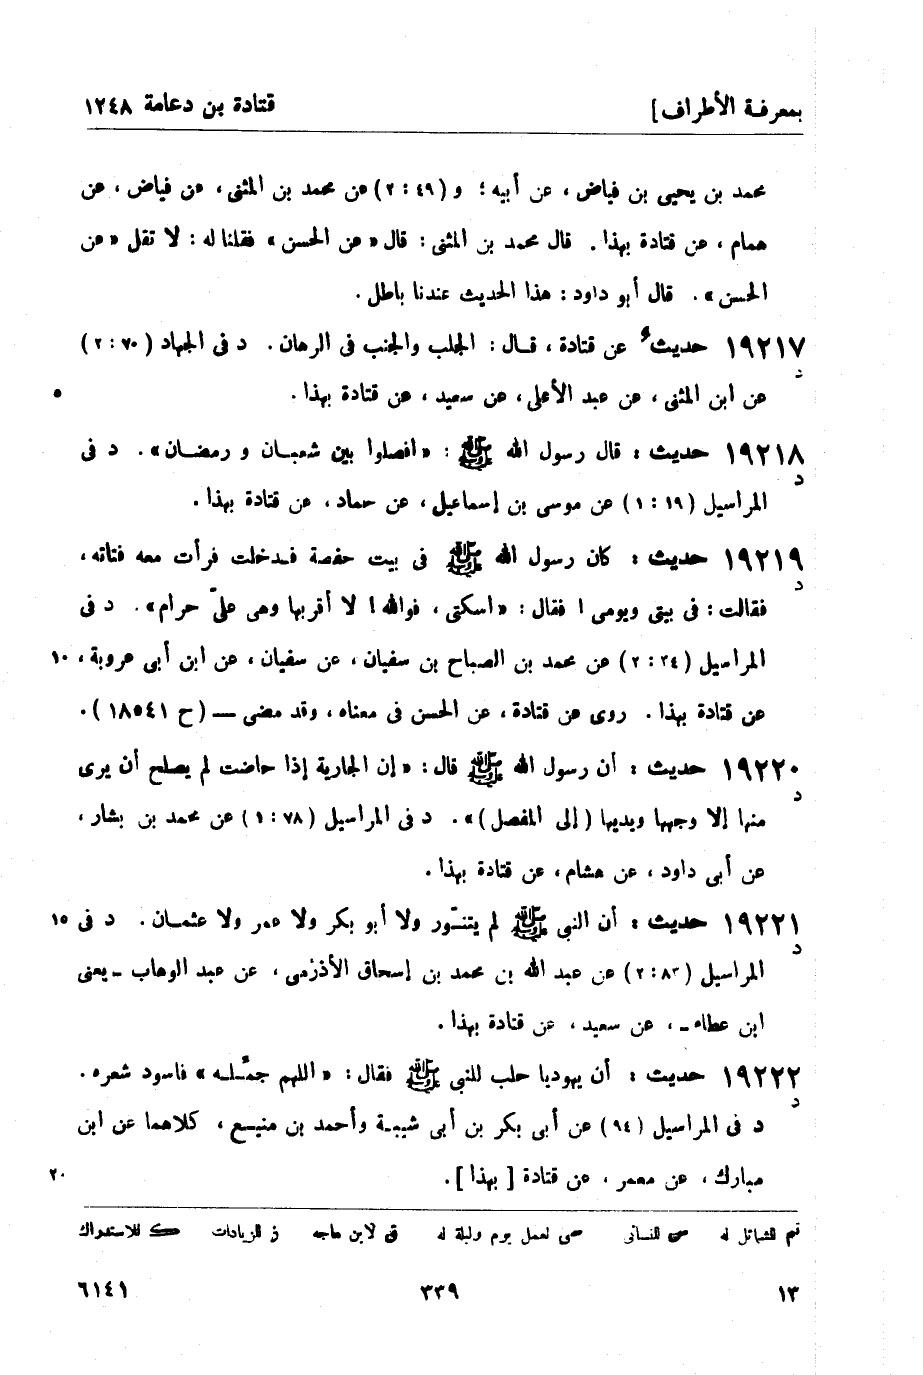 بمعرفة الأطراف] قتادة بن دعامة ١٢٤٨
محمد بن يحيى بن فياض، عن أبيه؛ و (٤٩ : ٢) عن محمد بن المثنى، عن فياض، عن
همام، عن قتادة بهذا. قال محمد بن المثنى: قال «عن الحسن» فقلنا له: لا تقل «عن
الحسن». قال أبو داود: هذا الحديث عندنا باطل.
١٩٢١٧ حديثُ عن قتادة، قال: الجلب والجنب فى الرهان. د فى الجهاد (٧٠ : ٢)
د
عن ابن المثنى، عن عبد الأعلى، عن سعيد، عن قتادة بهذا. ٥
١٩٢١٨ حديث: قال رسول الله ﷺ: «افصلوا بين شعبان و رمضان». د فى
د
المراسيل (١٩ : ١) عن موسى بن إسماعيل، عن حماد، عن قتادة بهذا.
١٩٢١٩ حديث: كان رسول الله ﷺ فى بيت حفصة فدخلت فرأت معه فتاته،
د
فقالت: فى بيتى ويومى! فقال: «اسكتى، فوالله! لا أقربها وهى علىّ حرام». د فى
المراسيل (٣٤ : ٢) عن محمد بن الصباح بن سفيان، عن سفيان، عن ابن أبى عروبة، ١٠
عن قتادة بهذا. روى عن قتادة، عن الحسن فى معناه، وقد مضى ــ (ح ١٨٥٤١).
١٩٢٢٠ حديث: أن رسول الله ﷺ قال: «إن الجارية إذا حاضت لم يصلح أن يرى
د
منها إلا وجهها ويديها (إلى المفصل)». د فى المراسيل (٧٨ : ١) عن محمد بن بشار،
عن أبى داود، عن هشام، عن قتادة بهذا.
١٩٢٢١ حديث: أن النبى ﷺ لم يتنوّر ولا أبو بكر ولا عمر ولا عثمان. د فى ١٥
د
المراسيل (٨٣ : ٢) عن عبد الله بن محمد بن إسحاق الأذرمى، عن عبد الوهاب ــ يعنى
ابن عطاء ــ، عن سعيد، عن قتادة بهذا.
١٩٢٢٢ حديث: أن يهوديا حلب للنبى ﷺ فقال: «اللهم جمّله» فاسود شعره.
د
د فى المراسيل (٩٤) عن أبى بكر بن أبى شيبة وأحمد بن منيع، كلاهما عن ابن
مبارك، عن معمر، عن قتادة [بهذا]. ٢٠
تم للشمائل له س للنسائى سى لعمل يوم وليلة له ق لابن ماجه ز للزيادات ك للاستدراك
١٣ ٣٣٩ ٦١٤١